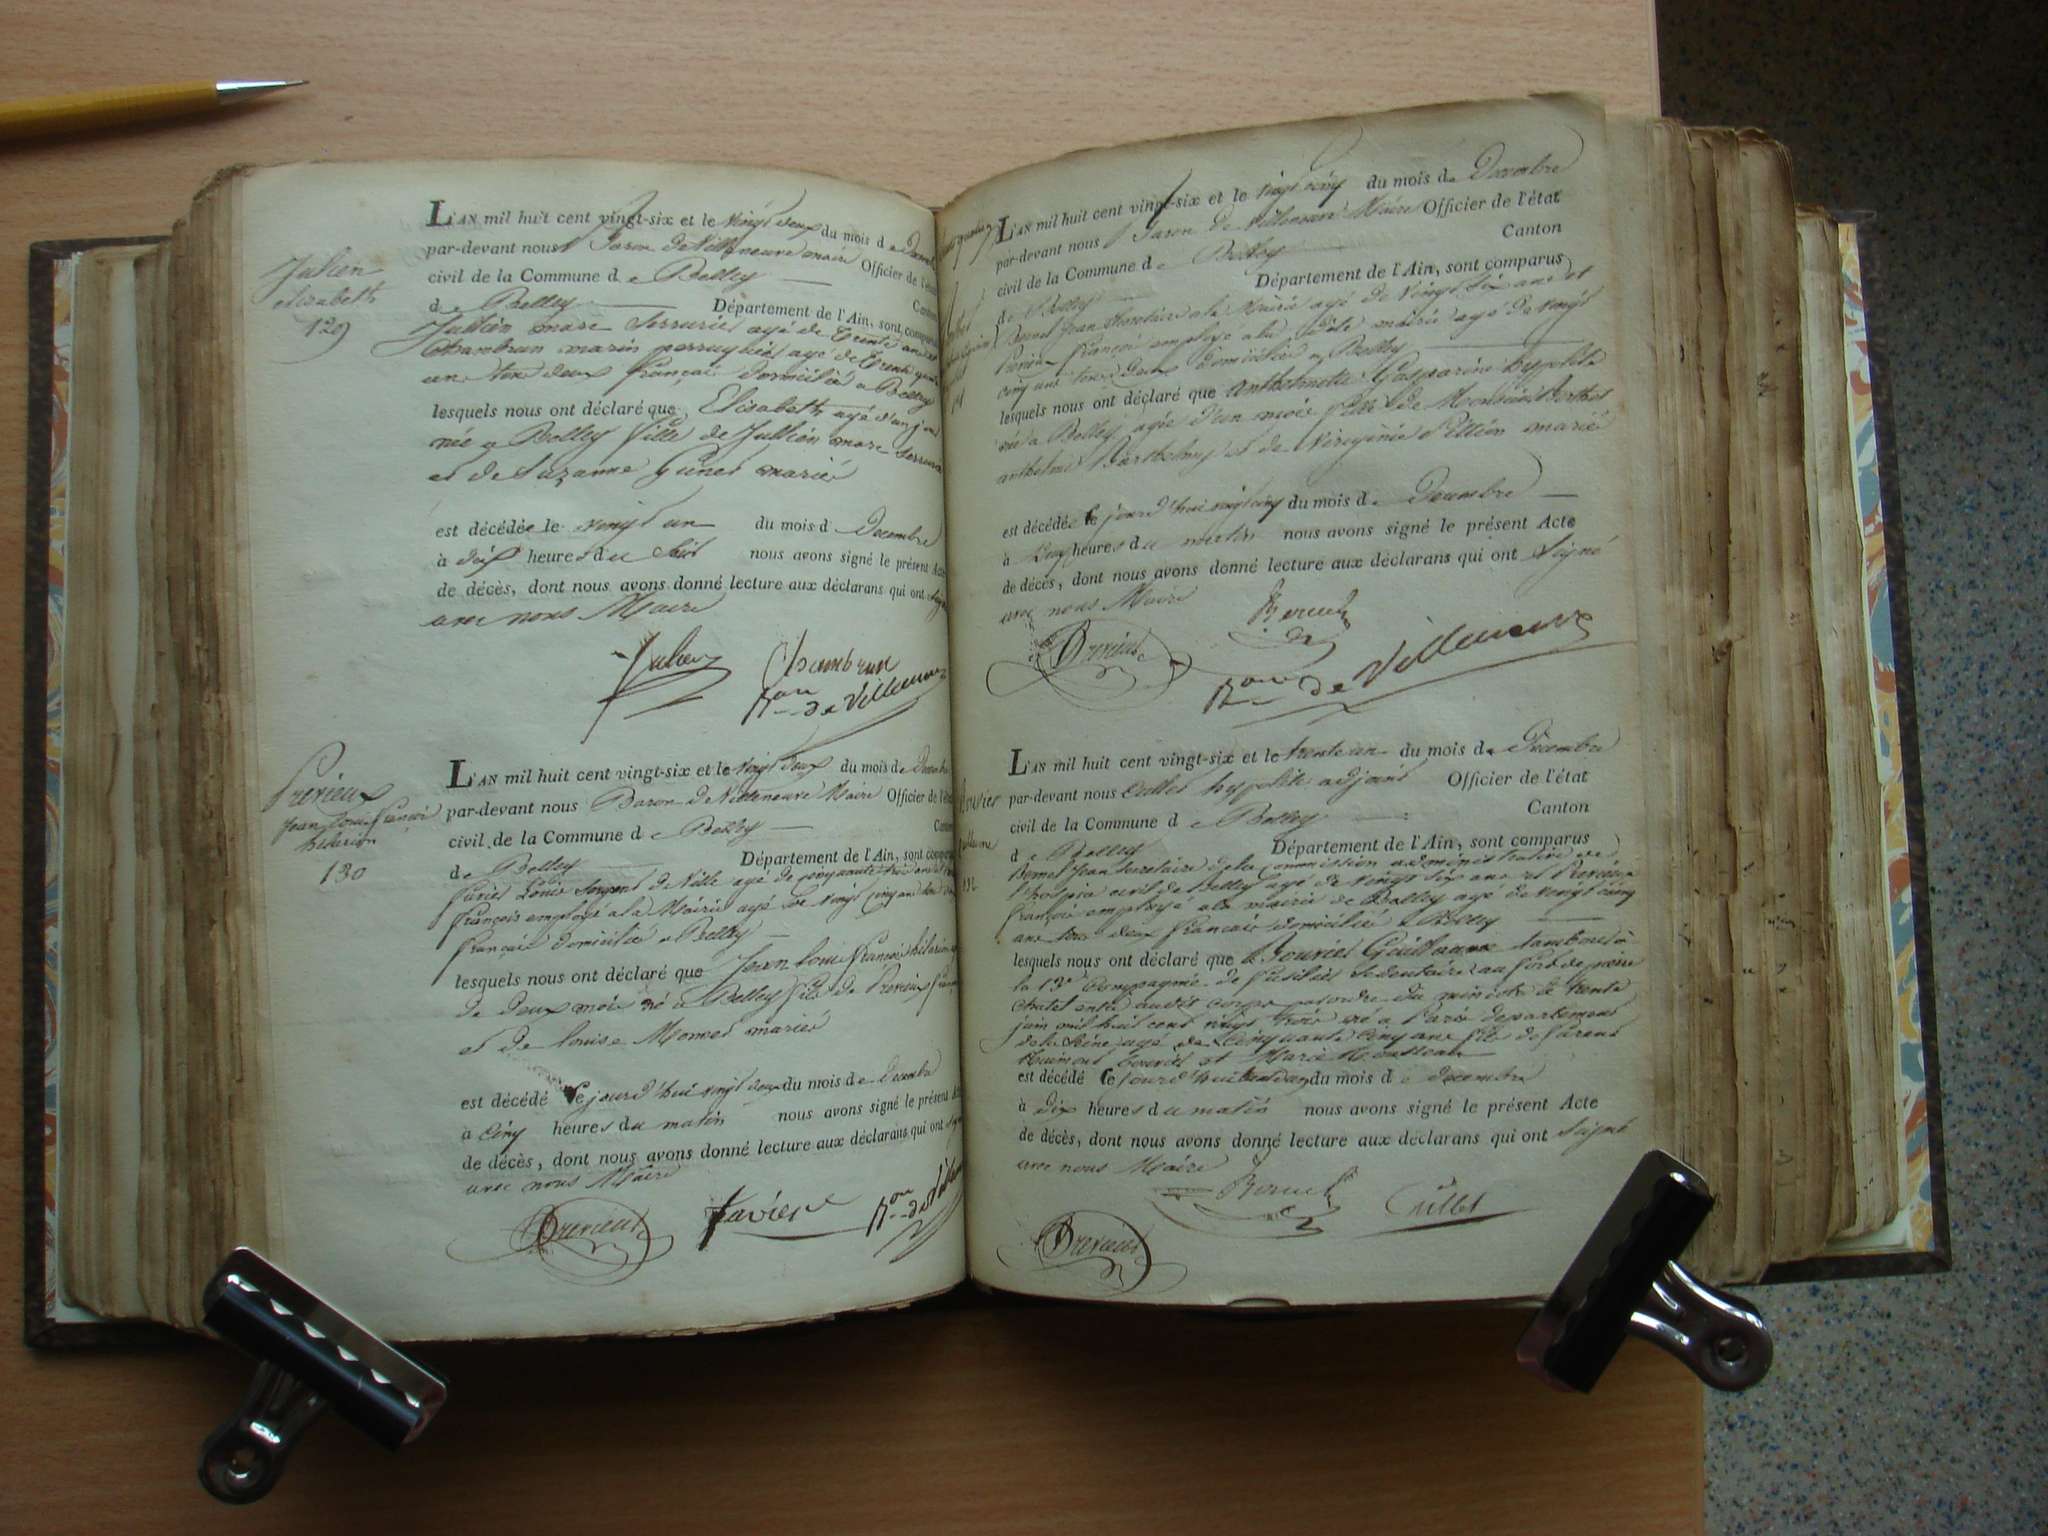 Julien
elisabeth
129
L'AN mil huit cent vingt-six et le vingt deux du mois de
par-devant nous Baron de Villeneuve maire Officier de l'état
civil de la Commune d e Belley
d e Belley Département de l'Ain, sont comparus
Jullien marc Serrurier agé de trente ans et
Chambrun marin perruquier agé de trente quatre
ans tous deux français domicilié a Belley
lesquels nous ont déclaré que Elisabeth agé d'un jour
née a Belley fille de Jullien marc Serrurier
et de Suzanne marié
est décédée le vingt un du mois d Decembre
à dix heures du Soir nous avons signé le présent Acte
de décès, dont nous avons donné lecture aux déclarans qui ont signé
avec nous Maire
Julien Chambrun
Bon de Villeneuve
Prerieux
jean louis françoi
hilarion
130
L'AN mil huit cent vingt-six et le vingt deux du mois de Decembre
par-devant nous Baron de Villeneuve Maire Officier de l'état
civil de la Commune d e Belley Canton
de Belley Département de l'Ain, sont comparus
Louis Sergent de Ville agé de cinquante trois ans et
françois employé a la Mairie agé de vingt cinq ans tous deux
français domicilié a Belley
lesquels nous ont déclaré que Jean louis françois hilarion agé
de deux mois né a Belley fils de Prerieux françois
et de louise Monet mariés
est décédé le jourd'hui vingt deux du mois de Decembre
à Cinq heures du matin nous avons signé le présent Acte
de décès, dont nous avons donné lecture aux déclarans qui ont signé
avec nous Maire
Prerieux Bon de
L'AN mil huit cent vingt-six et le vingt cinq du mois de Decembre
par-devant nous Baron de Villeneuve Maire Officier de l'état
civil de la Commune d e Belley Canton
de Belley Département de l'Ain, sont comparus
Jean Secrétaire a la Mairie agé de vingt six ans et
Prerieux françois employé a la dite mairie agé de vingt
cinq ans tous deux domicilié a Belley
lesquels nous ont déclaré que anthelmette Gasparine hyppolite
née a Belley agée d'un mois fille de Monsieur
anthelme Barthelmy et de Virginie marié
est décédée le jourd'hui vingt cinq du mois de Decembre
à heures du matin nous avons signé le présent Acte
de décès, dont nous avons donné lecture aux déclarans qui ont Signé
avec nous Maire
Prerieux
Bon de Villeneuve
L'AN mil huit cent vingt-six et le trente un du mois de Decembre
par-devant nous Cullet hypolite adjoint Officier de l'état
civil de la Commune d e Belley Canton
d e Belley Département de l'Ain, sont comparus
Jean Secrétaire de la Commission administrative de
l'hospice civil de Belley agé de vingt six ans et Prerieux
françois employé a la mairie de Belley agé de vingt cinq
ans tous deux français domicilié a Belley
lesquels nous ont déclaré que Guillaume tambour à
la 13e Compagnie de fusiliers Sedentaires au fort de pierre
chatel entré audit corps par ordre du ministre le trente
juin mil huit cent vingt trois né a Paris departement
de la Seine agé de Cinquante Cinq ans fils de
et Marie
est décédé le jourd'hui trente un du mois d e decembre
à dix heures du matin nous avons signé le présent Acte
de décès, dont nous avons donné lecture aux déclarans qui ont Signé
avec nous Maire
Cullet
Prerieux